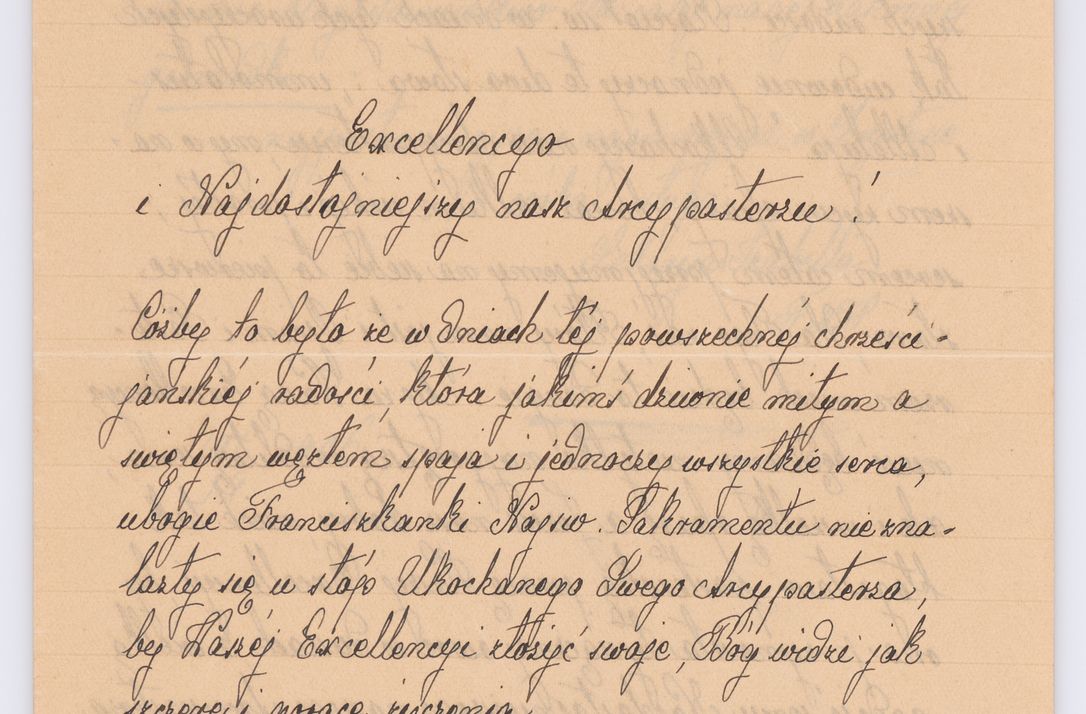 Excellencyo
i Najdostojniejszy nasz Arcypasterzu!
Cóżby to było że w dniach téj powszechnéj chrześci-
jańskiéj radości, która jakimś dziwnie miłym a
świętym węzłem spaja i jednoczy wszystkie serca,
ubogie Franciszkanki Najsw. Sakramentu nie zna-
lazły się u stóp Ukochanego Swego Arcypasterza,
by Waszéj Excellencyi złożyć swoje, Bóg widzi jak
szczere i gorące życzenia.